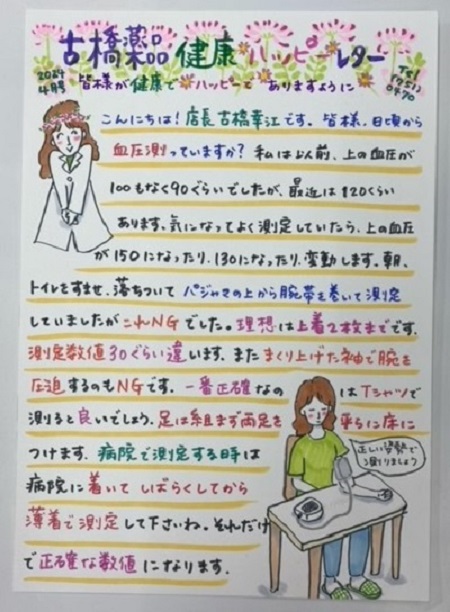 古橋薬品 健康 ハッピーレター
2024
4月号
皆様が健康でハッピーで ありますように
こんにちは!店長古橋幸江です。皆様、日頃から
血圧測っていますか?私は以前、上の血圧が
100もなく90ぐらいでしたが、最近は120ぐらい
あります。気になってよく測定していたら、上の血圧
が150になったり、130になったり、変動します。朝、
トイレをすませ、落ちついて パジャマの上から腕帯を巻いて測定
していましたがこれNGでした。理想は上着2枚までです。
測定数値30ぐらい違います。また まくり上げた袖で腕を
圧迫するのもNGです。一番正確なの はTシャツで
測ると良いでしょう。足は組まず両足を 平らに床に
つけます。病院で測定する時は
正しい姿勢で
測りましょう
病院に着いて しばらくしてから
薄着で測定して下さいね。それだけ
で正確な数値になります。